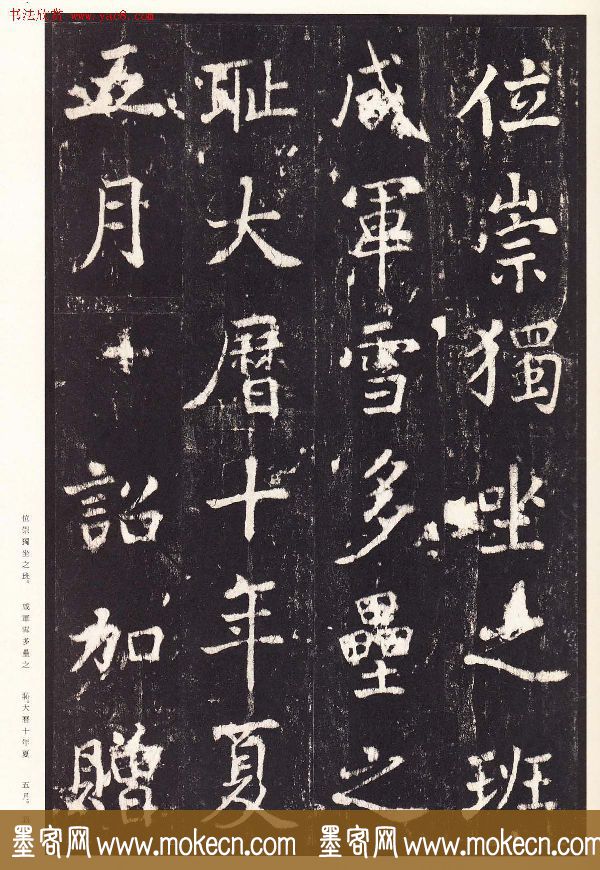 书法欣赏 www.yac8.com
位崇獨坐之班
咸軍雪多壘之
耻大曆十年夏
五月十詔加贈
位崇獨坐之班。 咸軍雪多壘之 耻大曆十年夏 五月。
墨客网 www.mokecn.com 墨客网 www.mokecn.com